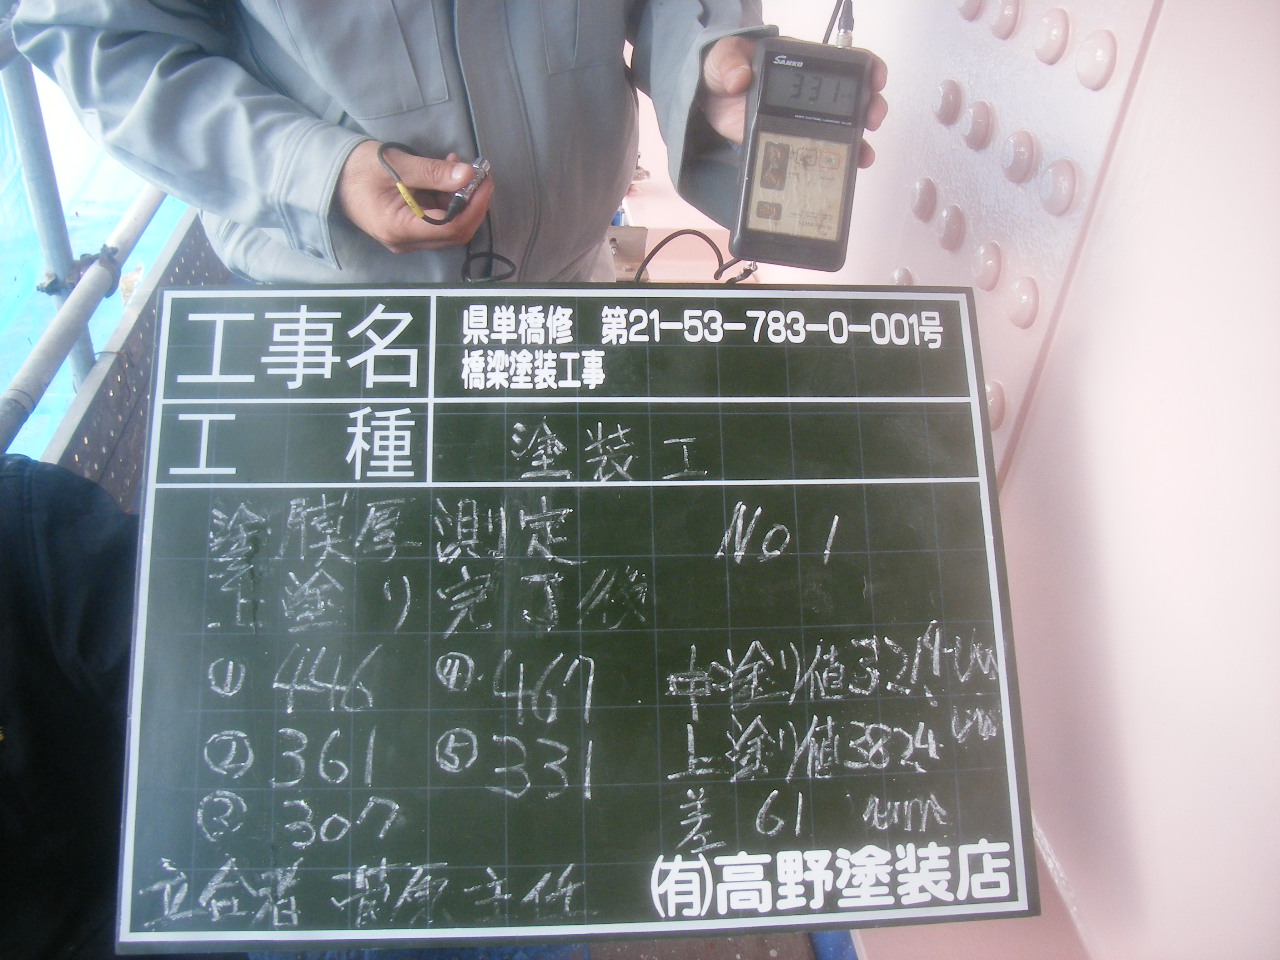 SANKO
331
工事名
県単橋修 第21-53-783-0-001号
橋梁塗装工事
工種
塗装工
塗膜厚測定 No 1
上塗り完了後
① 446 ④ 467 中塗り値 321.4 μm
② 361 ⑤ 331 上塗り値 382.4 μm
③ 307 差 61 μm
立会者 菅原主任
(有)高野塗装店